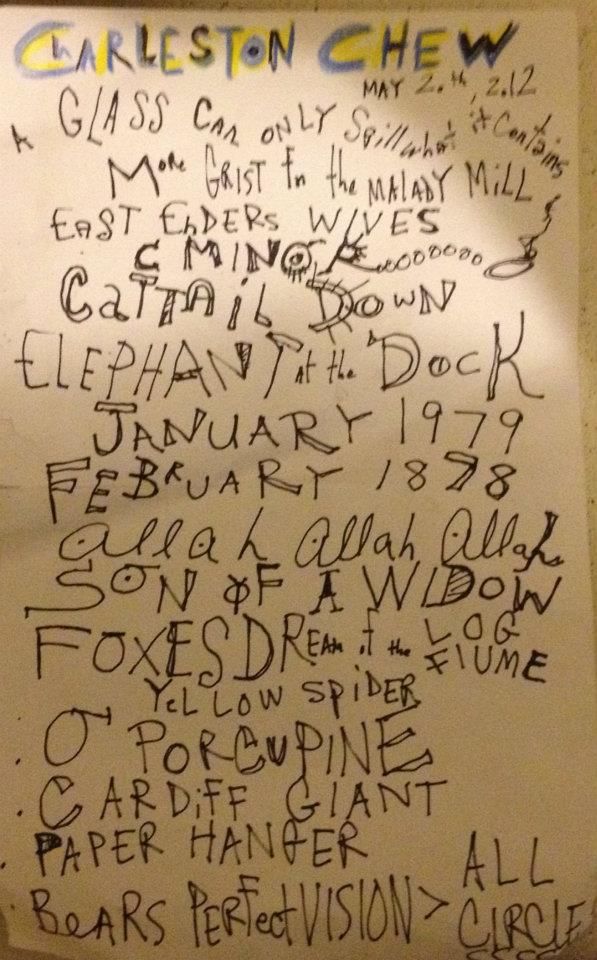 CHARLESTON CHEW
MAY 2.th, 2.12
A GLASS CAN ONLY Spill what it Contains
MORE GRIST for the MALADY MILL
EAST ENDERS WIVES
C MINOR
CATTAIL DOWN
ELEPHANT at the DOCK
JANUARY 1979
FEBRUARY 1878
allah allah allah
SON OF A WIDOW
FOXES DREAM of the LOG FLUME
YELLOW SPIDER
. O PORCUPINE
. CARDiFF GIANT
. PAPER HANGER
. BEARS PERFect VISION > ALL
CIRCLE
SSSS